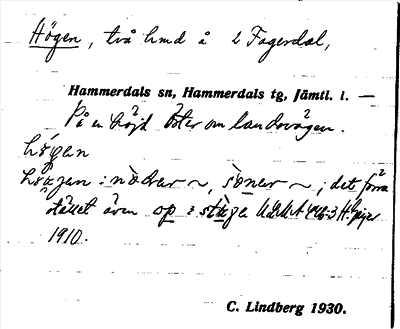 Högen, två hmd å 2 Fagerdal,
Hammerdals sn, Hammerdals tg, Jämtl. l. —
På en höjd öster om landsvägen.
högen
: nòdrar ~, sönèr ~ ; det förra
stället även op i
1910.
C. Lindberg 1930.